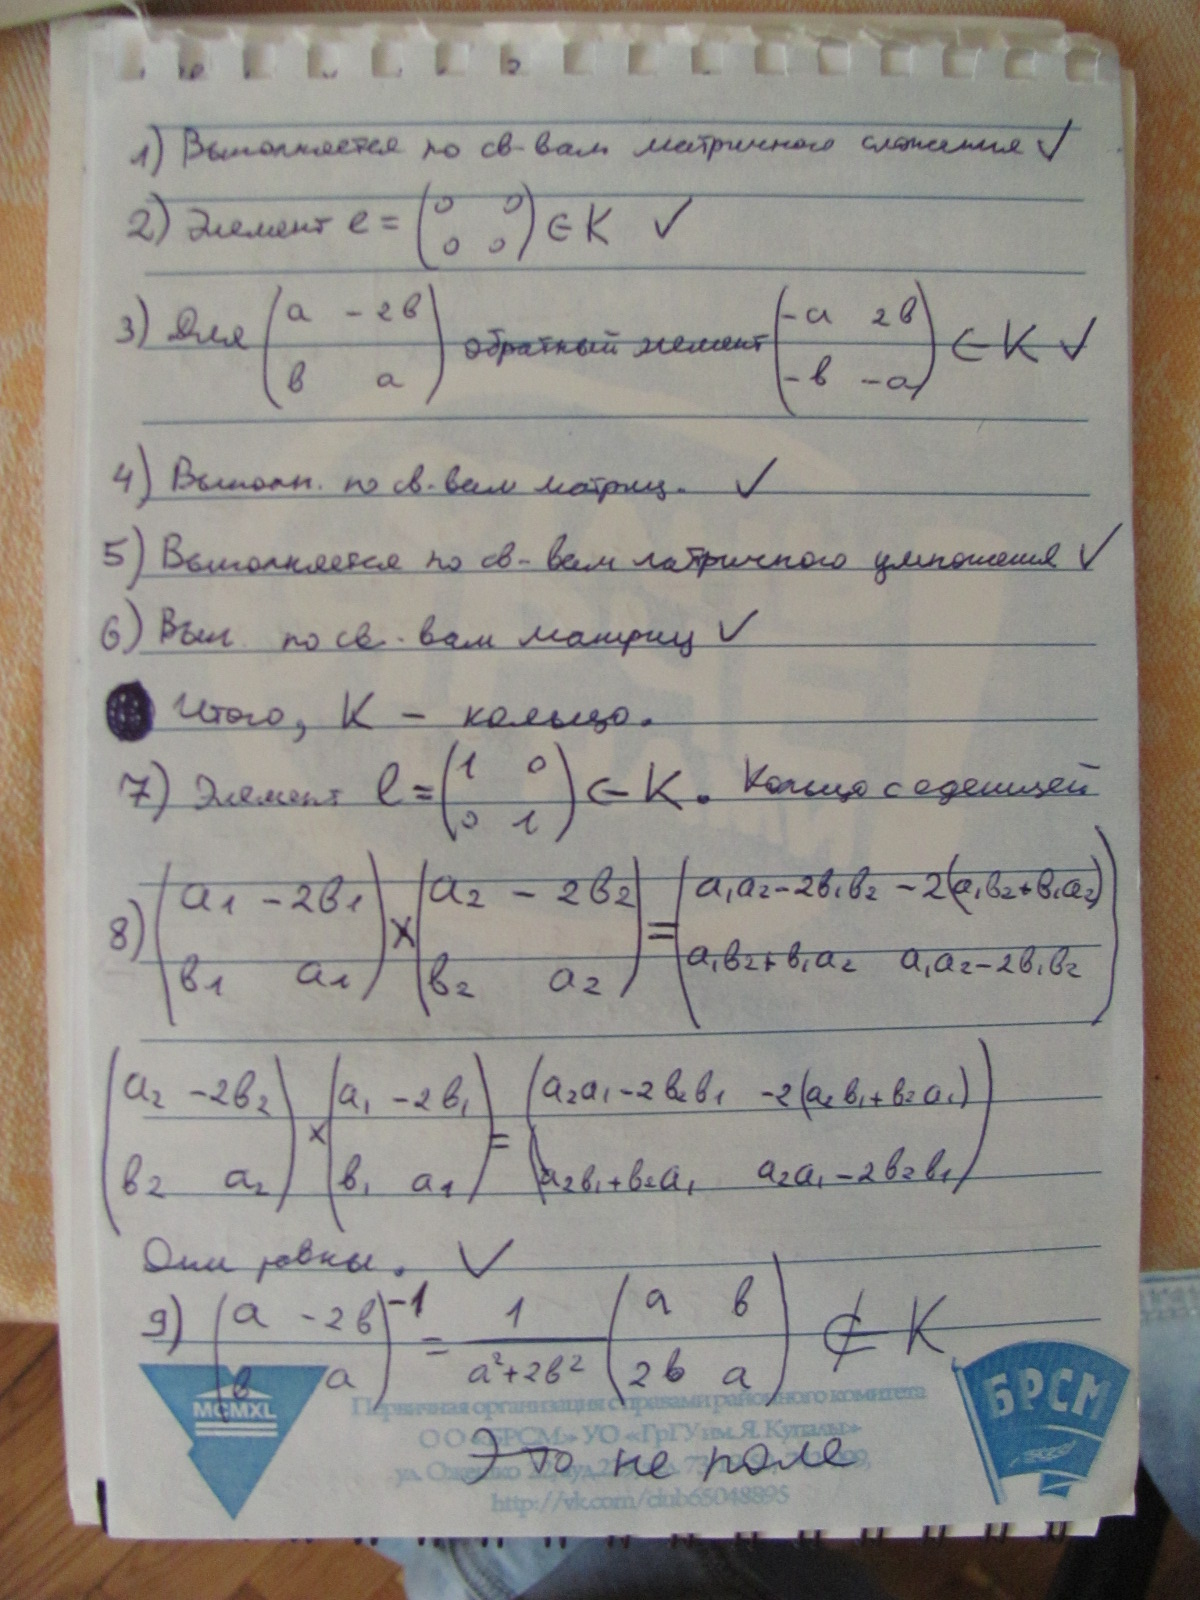 1) Выполняется по св-вам матричного сложения ✓
2) Элемент e = (0 0 / 0 0) ∈ K ✓
3) Для (a -2в / в a) обратный элемент (-a 2в / -в -a) ∈ K ✓
4) Выполн. по св-вам матриц. ✓
5) Выполняется по св-вам матричного умножения ✓
6) Вып. по св-вам матриц ✓
Итого, K – кольцо.
7) Элемент e = (1 0 / 0 1) ∈ K. Кольцо с еденицей
8) (a₁ -2в₁ / в₁ a₁) × (a₂ -2в₂ / в₂ a₂) = (a₁a₂-2в₁в₂ -2(a₁в₂+в₁a₂) / a₁в₂+в₁a₂ a₁a₂-2в₁в₂)
(a₂ -2в₂ / в₂ a₂) × (a₁ -2в₁ / в₁ a₁) = (a₂a₁-2в₂в₁ -2(a₂в₁+в₂a₁) / a₂в₁+в₂a₁ a₂a₁-2в₂в₁)
Они равны. ✓
9) (a -2в / в a)⁻¹ = 1/(a²+2в²) (a в / 2в a) ∉ K
MCMXL
БРСМ
Первичная организация с правами районного комитета
ОО «БРСМ» УО «ГрГУ им. Я. Купалы»
Это не поле
ул. Ожешко
http://vk.com/club65048895